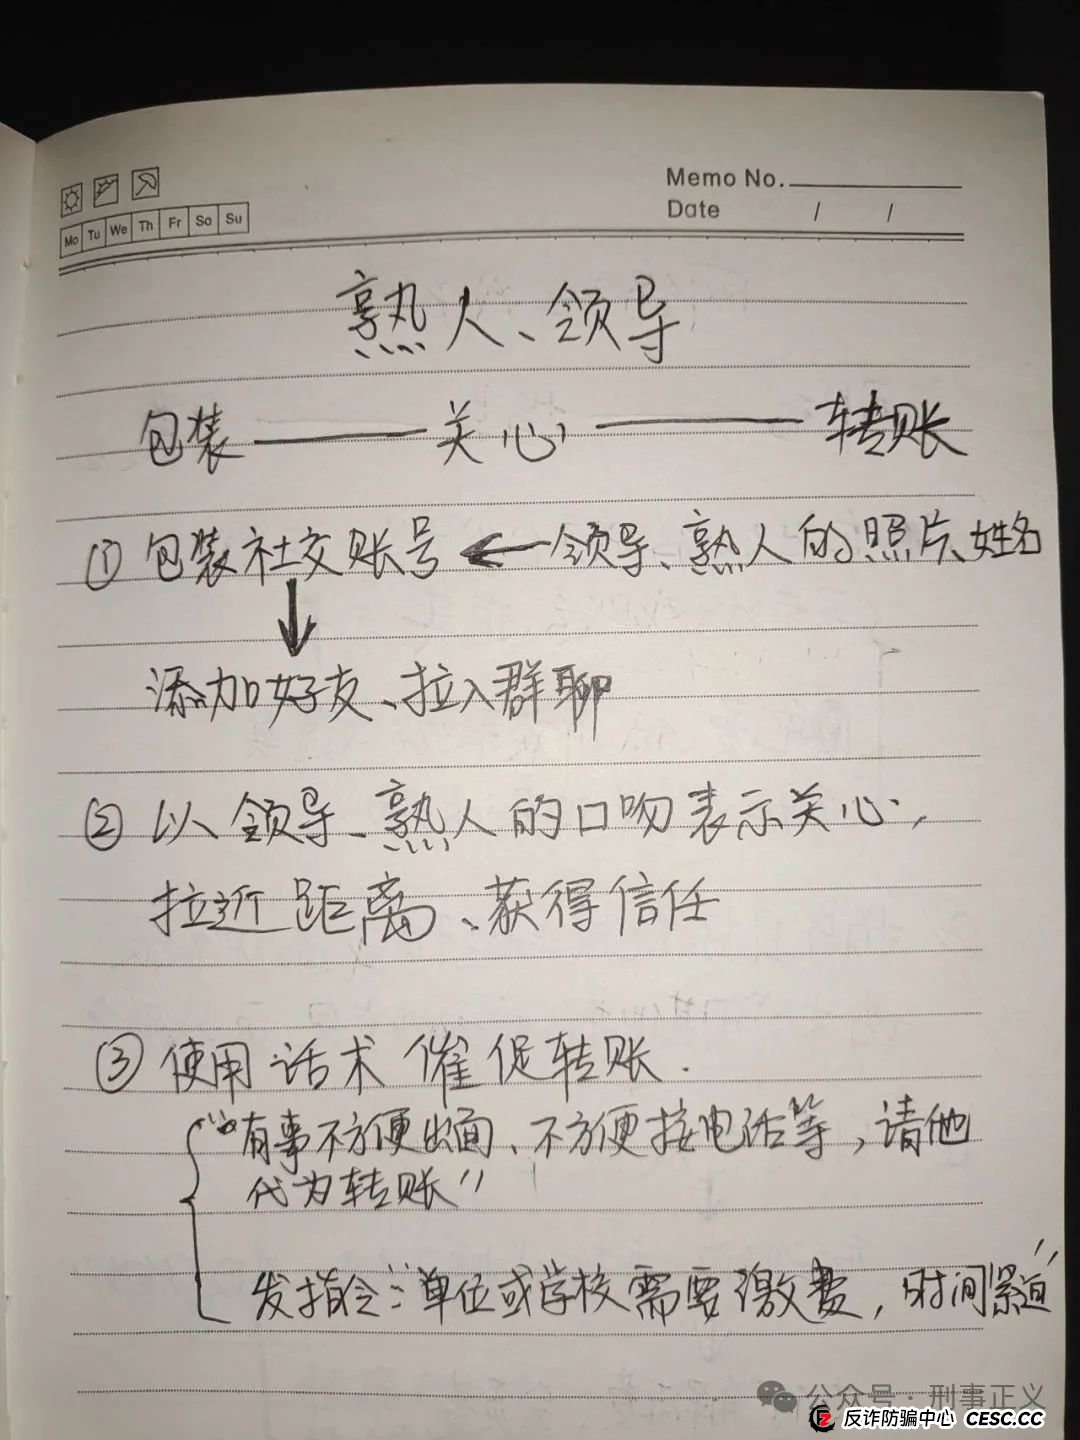 Memo No.
Mo Tu We Th Fr Sa Su
Date / /
熟人、领导
包装——关心——转账
① 包装社交账号 ← 领导、熟人的照片、姓名
↓
添加好友、拉入群聊
② 以领导、熟人的口吻表示关心,
拉近距离、获得信任
③ 使用话术催促转账.
“有事不方便出面、不方便接电话等,请他
代为转账”
发指令:“单位或学校需要缴费,时间紧迫”
公众号·刑事正义
反诈防骗中心 CESC.CC